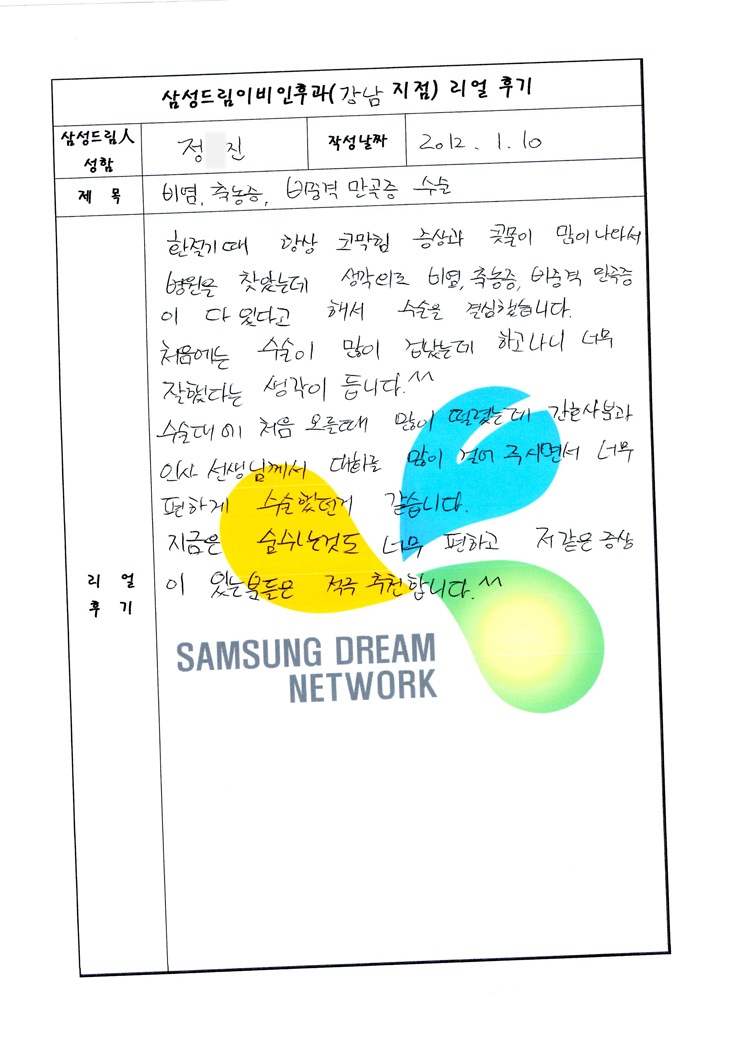 삼성드림이비인후과(강남 지점) 리얼 후기
삼성드림人 성함
정 진
작성날짜
2012. 1. 10
제 목
비염, 축농증, 비중격 만곡증 수술
리 얼 후 기
환절기때 항상 코막힘 증상과 콧물이 많이나와서
병원을 찾았는데 생각외로 비염, 축농증, 비중격 만곡증
이 다 있다고 해서 수술을 결심했습니다.
처음에는 수술이 많이 겁났는데 하고나니 너무
잘했다는 생각이 듭니다.^^
수술대에 처음 오를때 많이 떨렸는데 간호사분과
의사 선생님께서 대화를 많이 걸어 주시면서 너무
편하게 수술했던거 같습니다.
지금은 숨쉬는것도 너무 편하고 저같은 증상
이 있는분들은 적극 추천합니다.^^
SAMSUNG DREAM
NETWORK